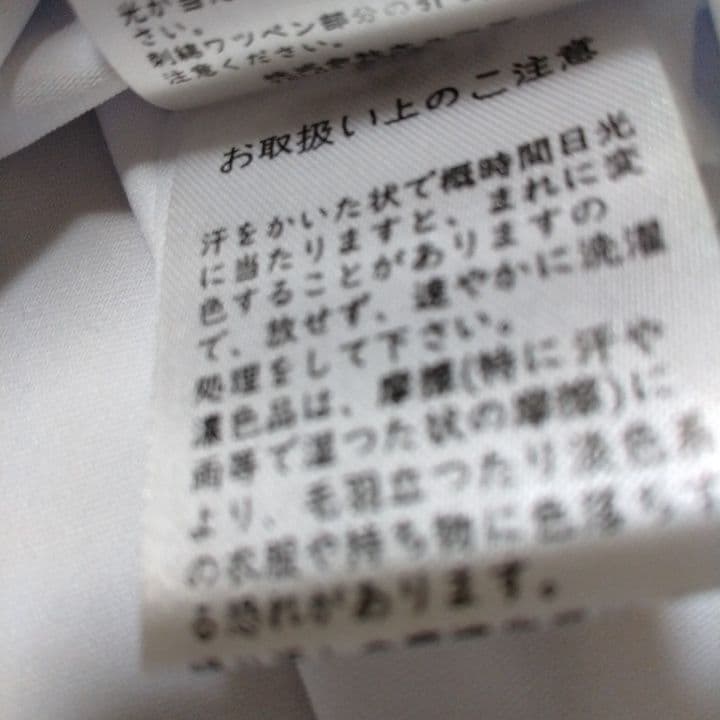 光が当た
さい。
刺繍ワッペン部分の引
注意ください。
お取扱い上のご注意
汗をかいた状で概時間日光
に当たりますと、まれに変
色することがありますの
で、放せず、速やかに洗濯
処理をして下さい。
濃色品は、摩擦(特に汗や
雨等で湿った状の摩擦)に
より、毛羽立つたり淡色系
の衣服や持ち物に色落ちす
る恐れがあります。